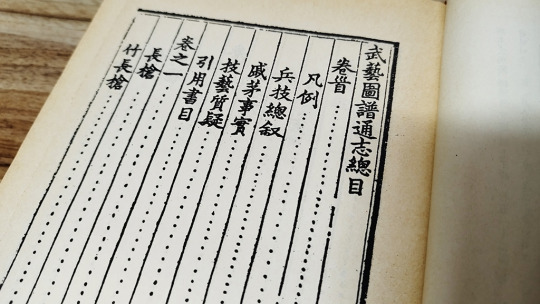 武藝圖譜通志總目
卷首
凡例
兵技總叙
戚茅事實
技藝質疑
引用書目
卷之一
長槍
竹長槍